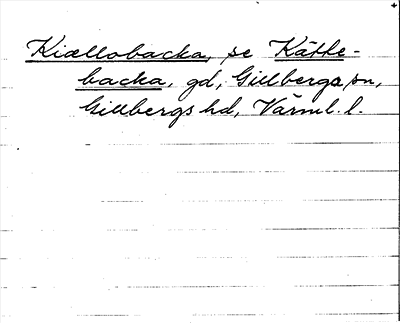 Kiællobacka, se Kätte-
backa, gd, Gillbergs sn,
Gillbergs hd, Värml. l.